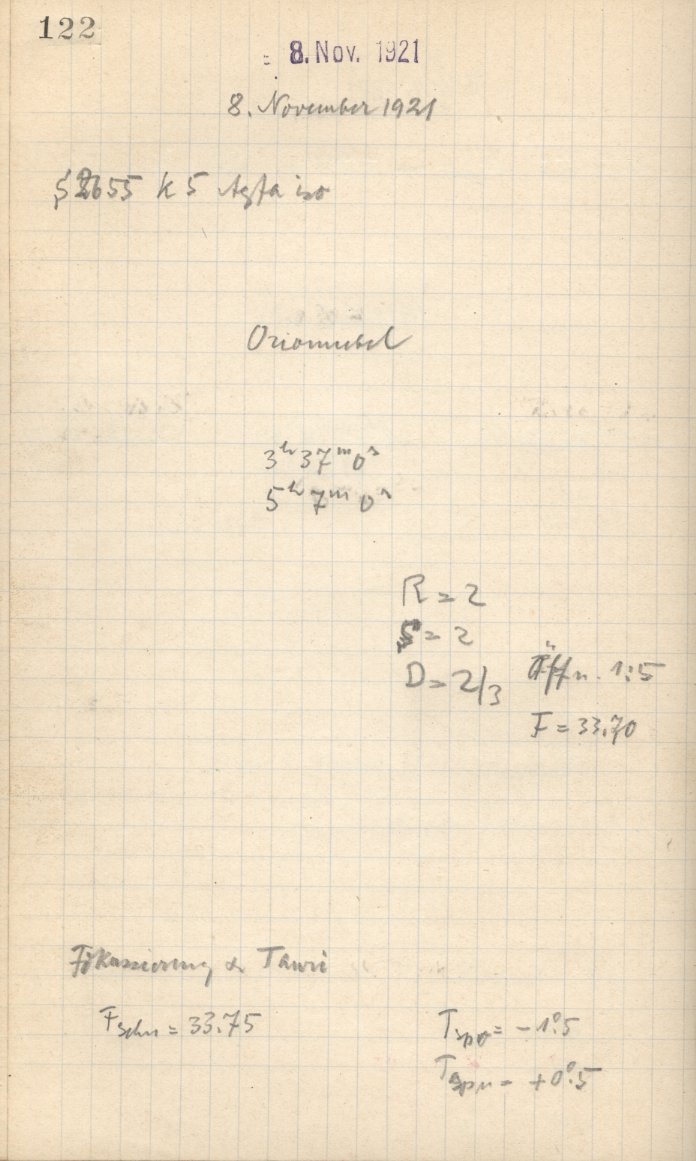 122
8. Nov. 1921
8. November 1921
2655 k 5 Agfa iso
Orionnebel
3ʰ 37ᵐ 0ˢ
5ʰ 7ᵐ 0ˢ
R = 2
S = 2
D = 2/3 Öffn. 1:5
F = 33.70
Fokussierung α Tauri
F schn = 33.75
T spo = -1°.5
T spu = +0°.5